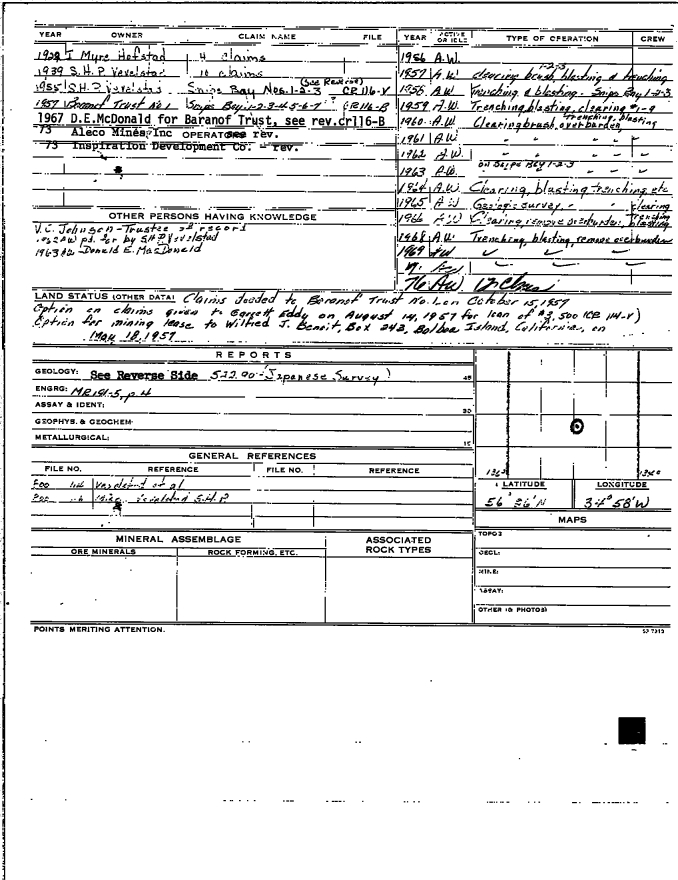 YEAR OWNER CLAIM NAME FILE
1928 J Myre Hofstad 4 claims
1939 S.H.P. Vevelstad 10 claims
(See Reverse)
1955 S.H.P. Vevelstad Snipe Bay Nos. 1-2-3 CR116-V
1957 Baranof Trust No 1 Snipe Bay 1-2-3-4-5-6-7 CR116-B
1967 D.E.McDonald for Baranof Trust, see rev.cr116-B
73 Aleco Mines, Inc OPERATOR see rev.
73 Inspiration Development Co. - rev.
OTHER PERSONS HAVING KNOWLEDGE
V.C. Johnson - Trustee of record
1962 AW pd. for by S.H.P. Vevelstad
1963 AW Donald E. MacDonald
YEAR ACTIVE OR IDLE TYPE OF OPERATION CREW
1956 A.W.
1-2-3
1957 A.W. clearing brush, blasting & trenching
1958 A.W. Trenching & blasting. Snipe Bay 1-2-3
1959 A.W. Trenching, blasting, clearing #1-9
trenching, blasting
1960 A.W. Clearing brush, overburden
1961 A.W. " " "
1962 A.W. " " "
on Snipe Bay 1-2-3
1963 A.W.
1964 A.W. Clearing, blasting trenching, etc
1965 A.W. Geologic survey - clearing
1966 A.W. Clearing, remove overburden, trenching blasting
1968 A.W. Trenching, blasting, remove overburden
1969 AW
71 AW
76 AW
LAND STATUS (OTHER DATA) Claims deeded to Baranof Trust No. 1 on October 15, 1957
Option on claims given to Garrett Eddy on August 14, 1957 for loan of $3,500 (CR 114-V)
Option for mining lease to Wilfred J. Benoit, Box 243, Balboa Island, California, on
May 18, 1957
REPORTS
GEOLOGY: See Reverse Side 522.00 - (Japanese Survey)
45
ENGRG: MR191-5, p.4
ASSAY & IDENT:
30
GEOPHYS. & GEOCHEM
METALLURGICAL:
15
GENERAL REFERENCES
FILE NO. REFERENCE FILE NO. REFERENCE
LATITUDE LONGITUDE
56° 26' N 34° 58' W
MAPS
MINERAL ASSEMBLAGE ASSOCIATED ROCK TYPES
ORE MINERALS ROCK FORMING, ETC.
TOPO:
DECL:
MINE:
ASSAY:
OTHER (& PHOTOS)
POINTS MERITING ATTENTION.